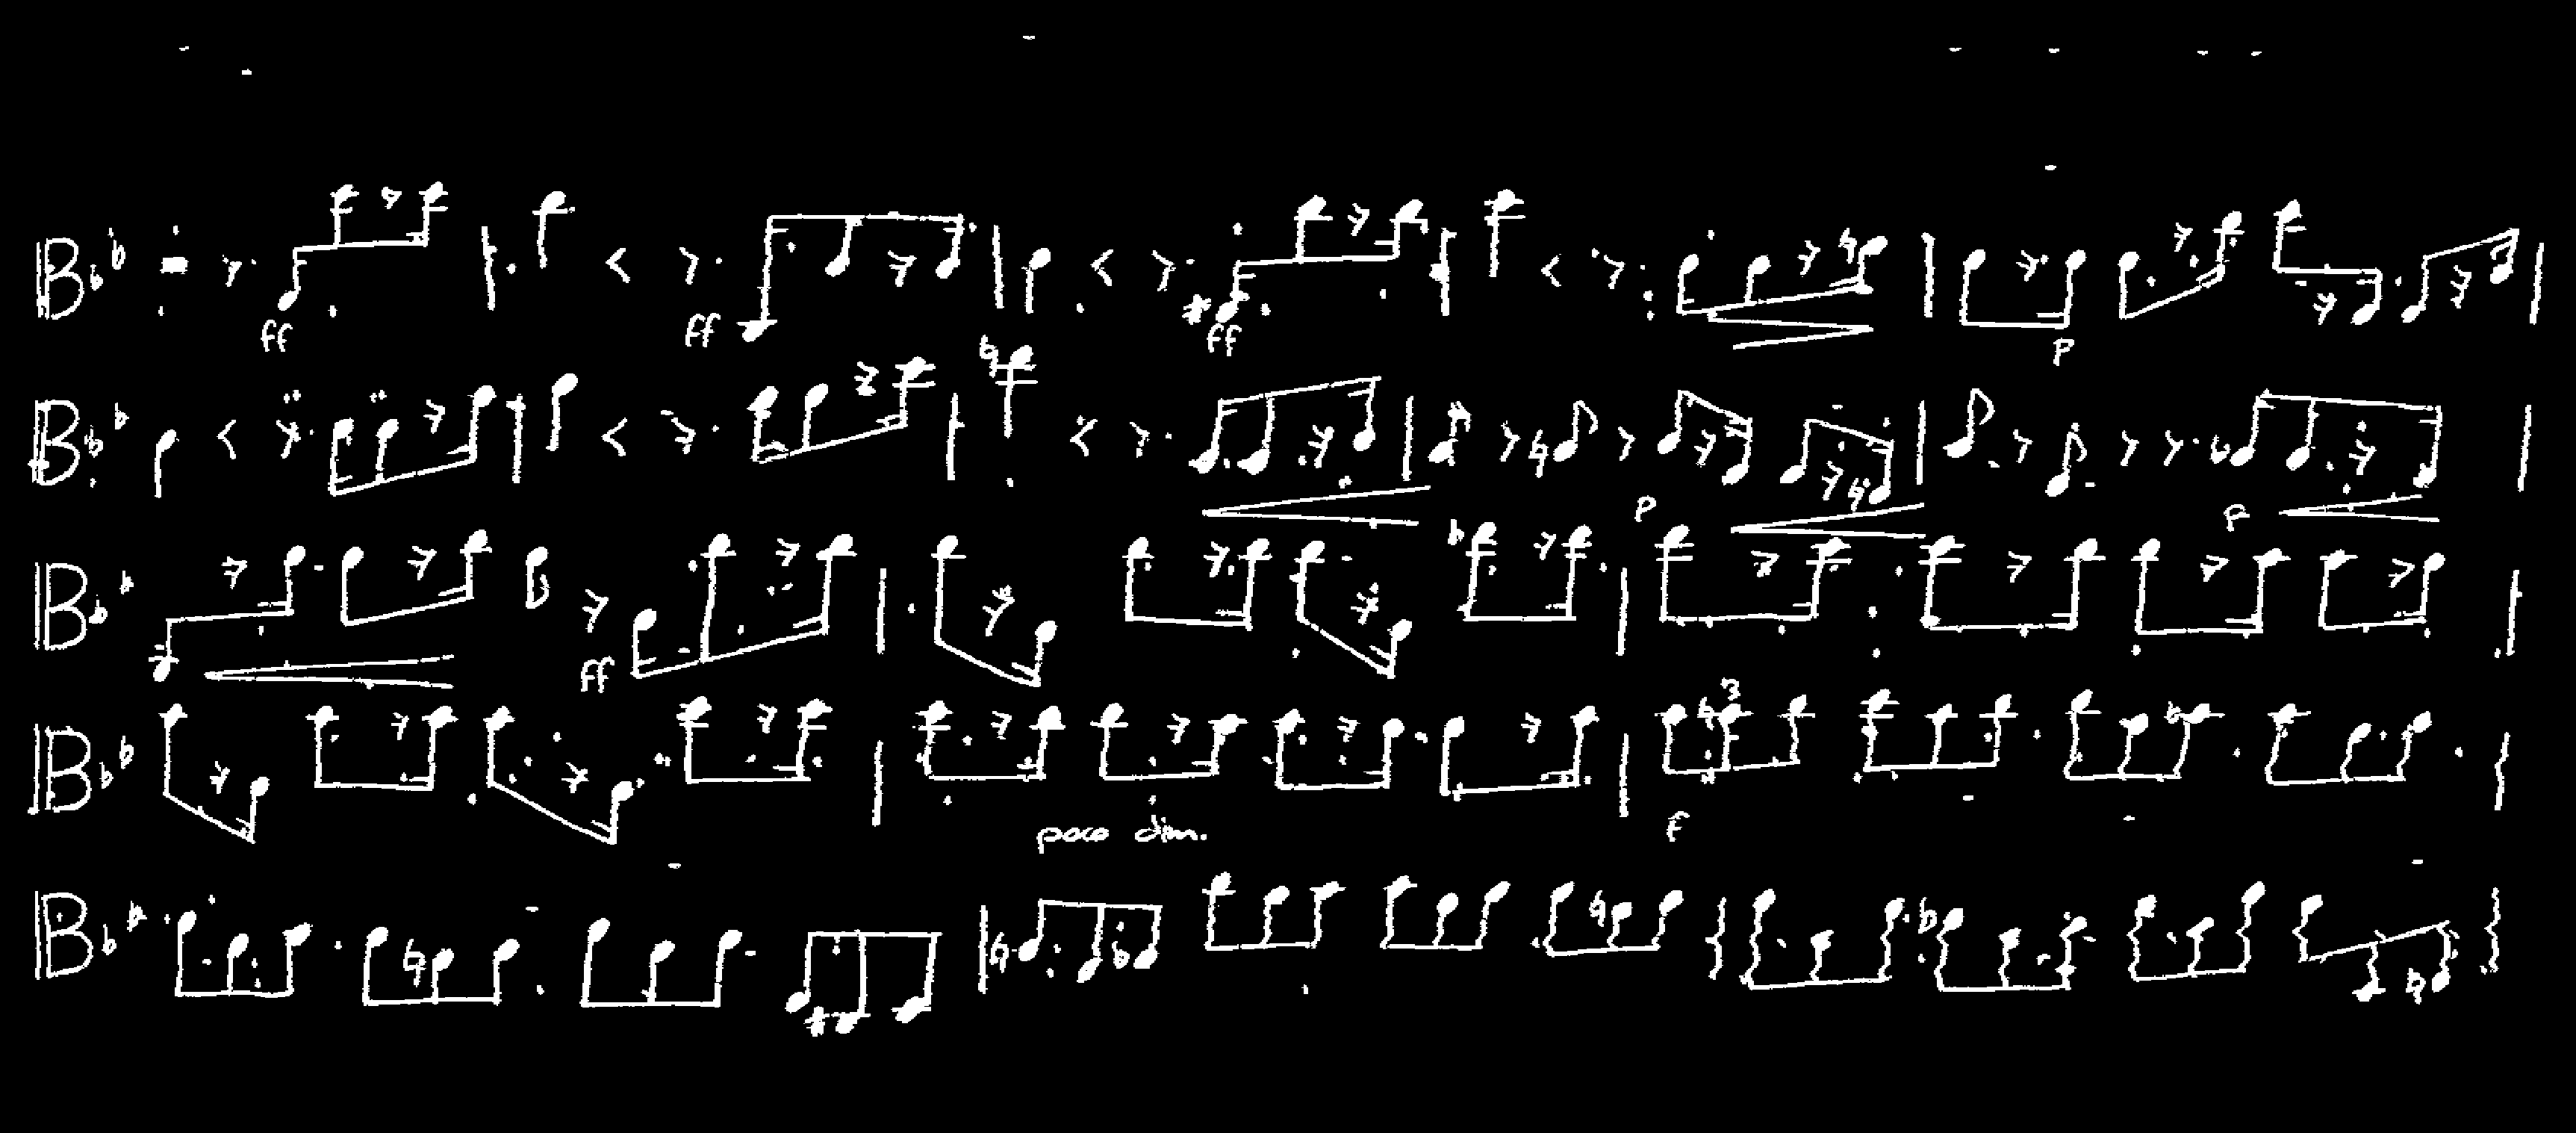 ff ff ff p
p f
ff
3
poco dim. f